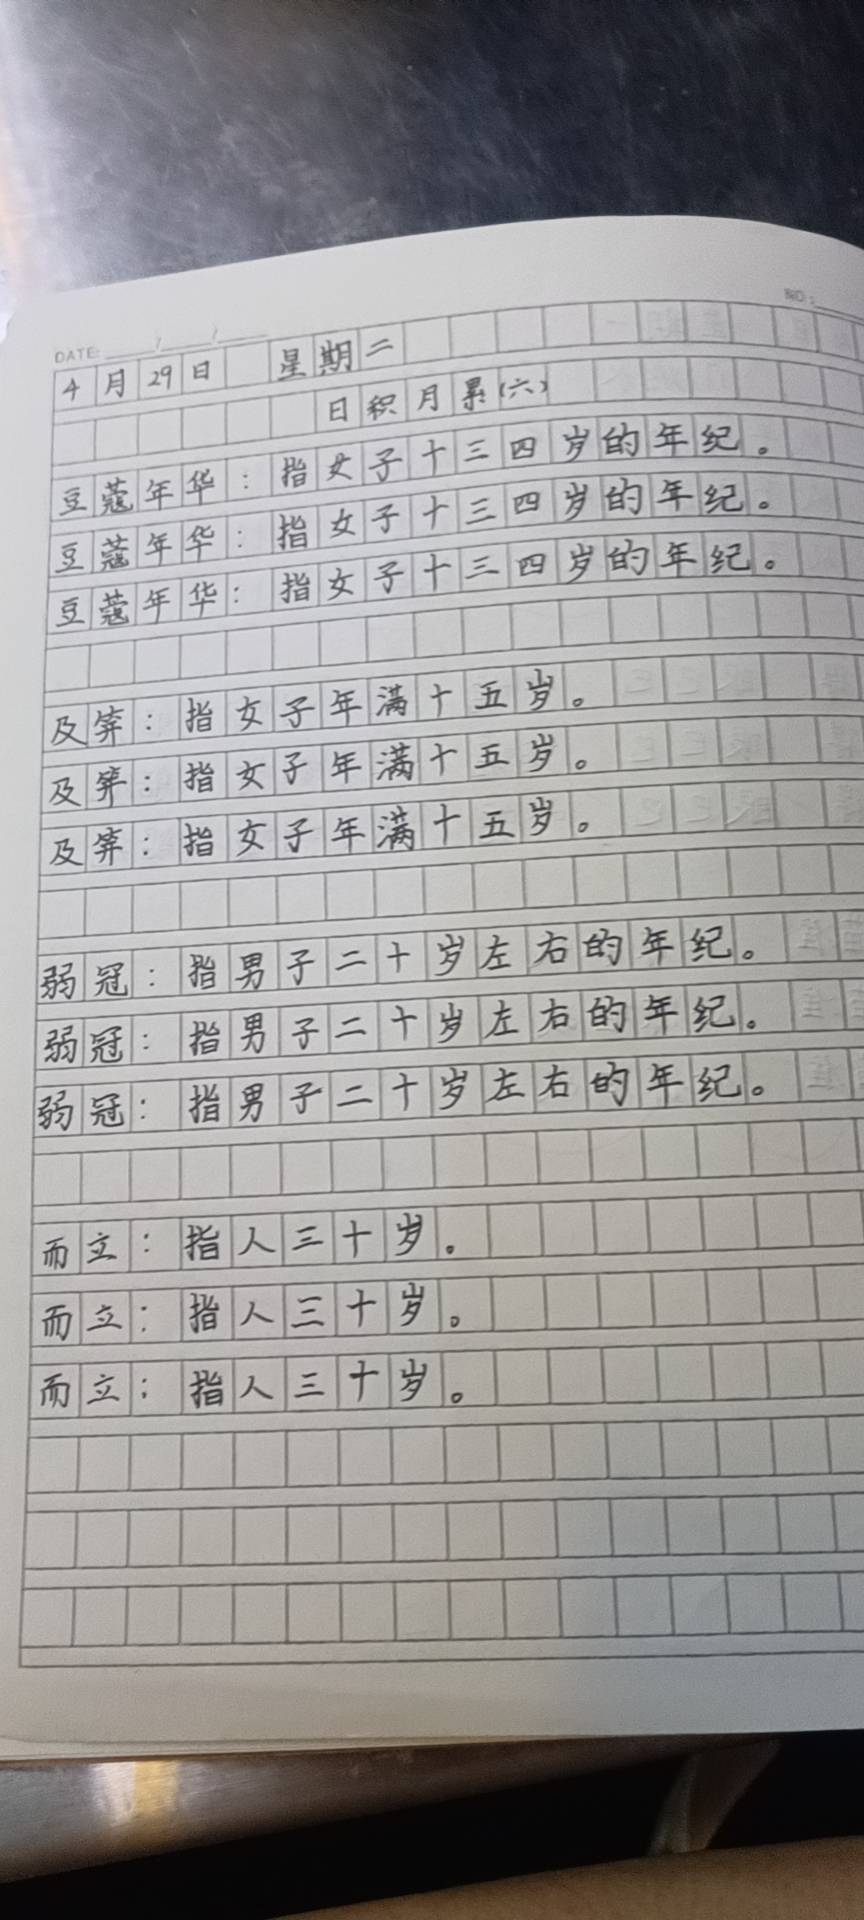 NO:
DATE: / /
4月29日 星期二
日积月累(六)
豆蔻年华：指女子十三四岁的年纪。
豆蔻年华：指女子十三四岁的年纪。
豆蔻年华：指女子十三四岁的年纪。
及笄：指女子年满十五岁。
及笄：指女子年满十五岁。
及笄：指女子年满十五岁。
弱冠：指男子二十岁左右的年纪。
弱冠：指男子二十岁左右的年纪。
弱冠：指男子二十岁左右的年纪。
而立：指人三十岁。
而立：指人三十岁。
而立：指人三十岁。